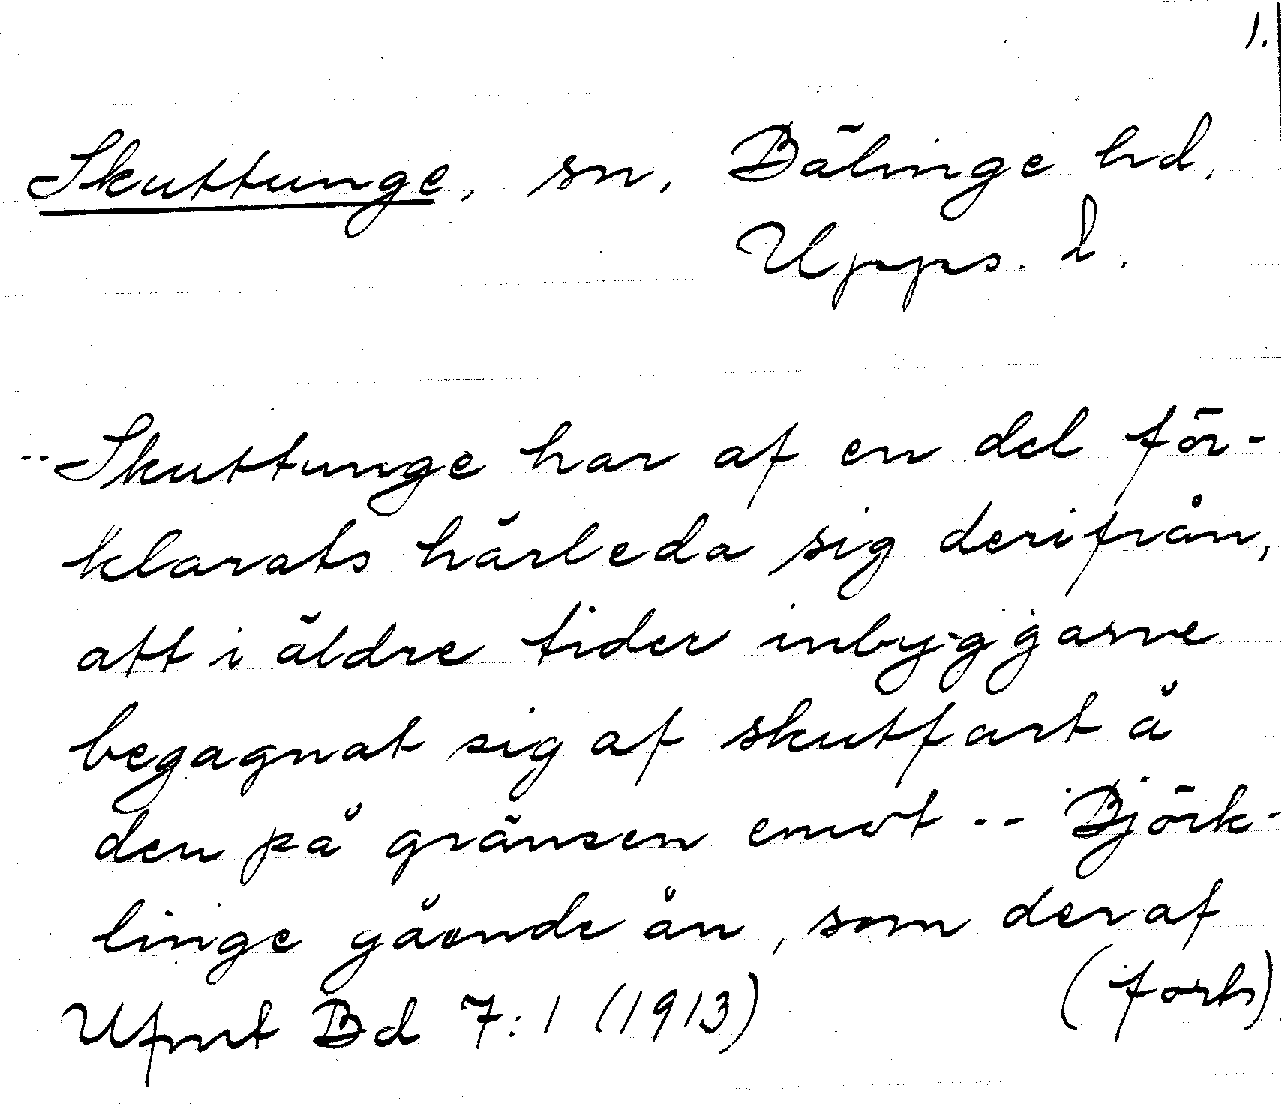 1.
Skuttunge, sn, Bälinge hd,
Upps. l.
-- Skuttunge har af en del för-
klarats härleda sig derifrån,
att i äldre tider inbyggarne
begagnat sig af skutfart å
den på gränsen emot -- Björk-
linge gående ån, som deraf
Ufmt Bd 7:1 (1913) (forts)